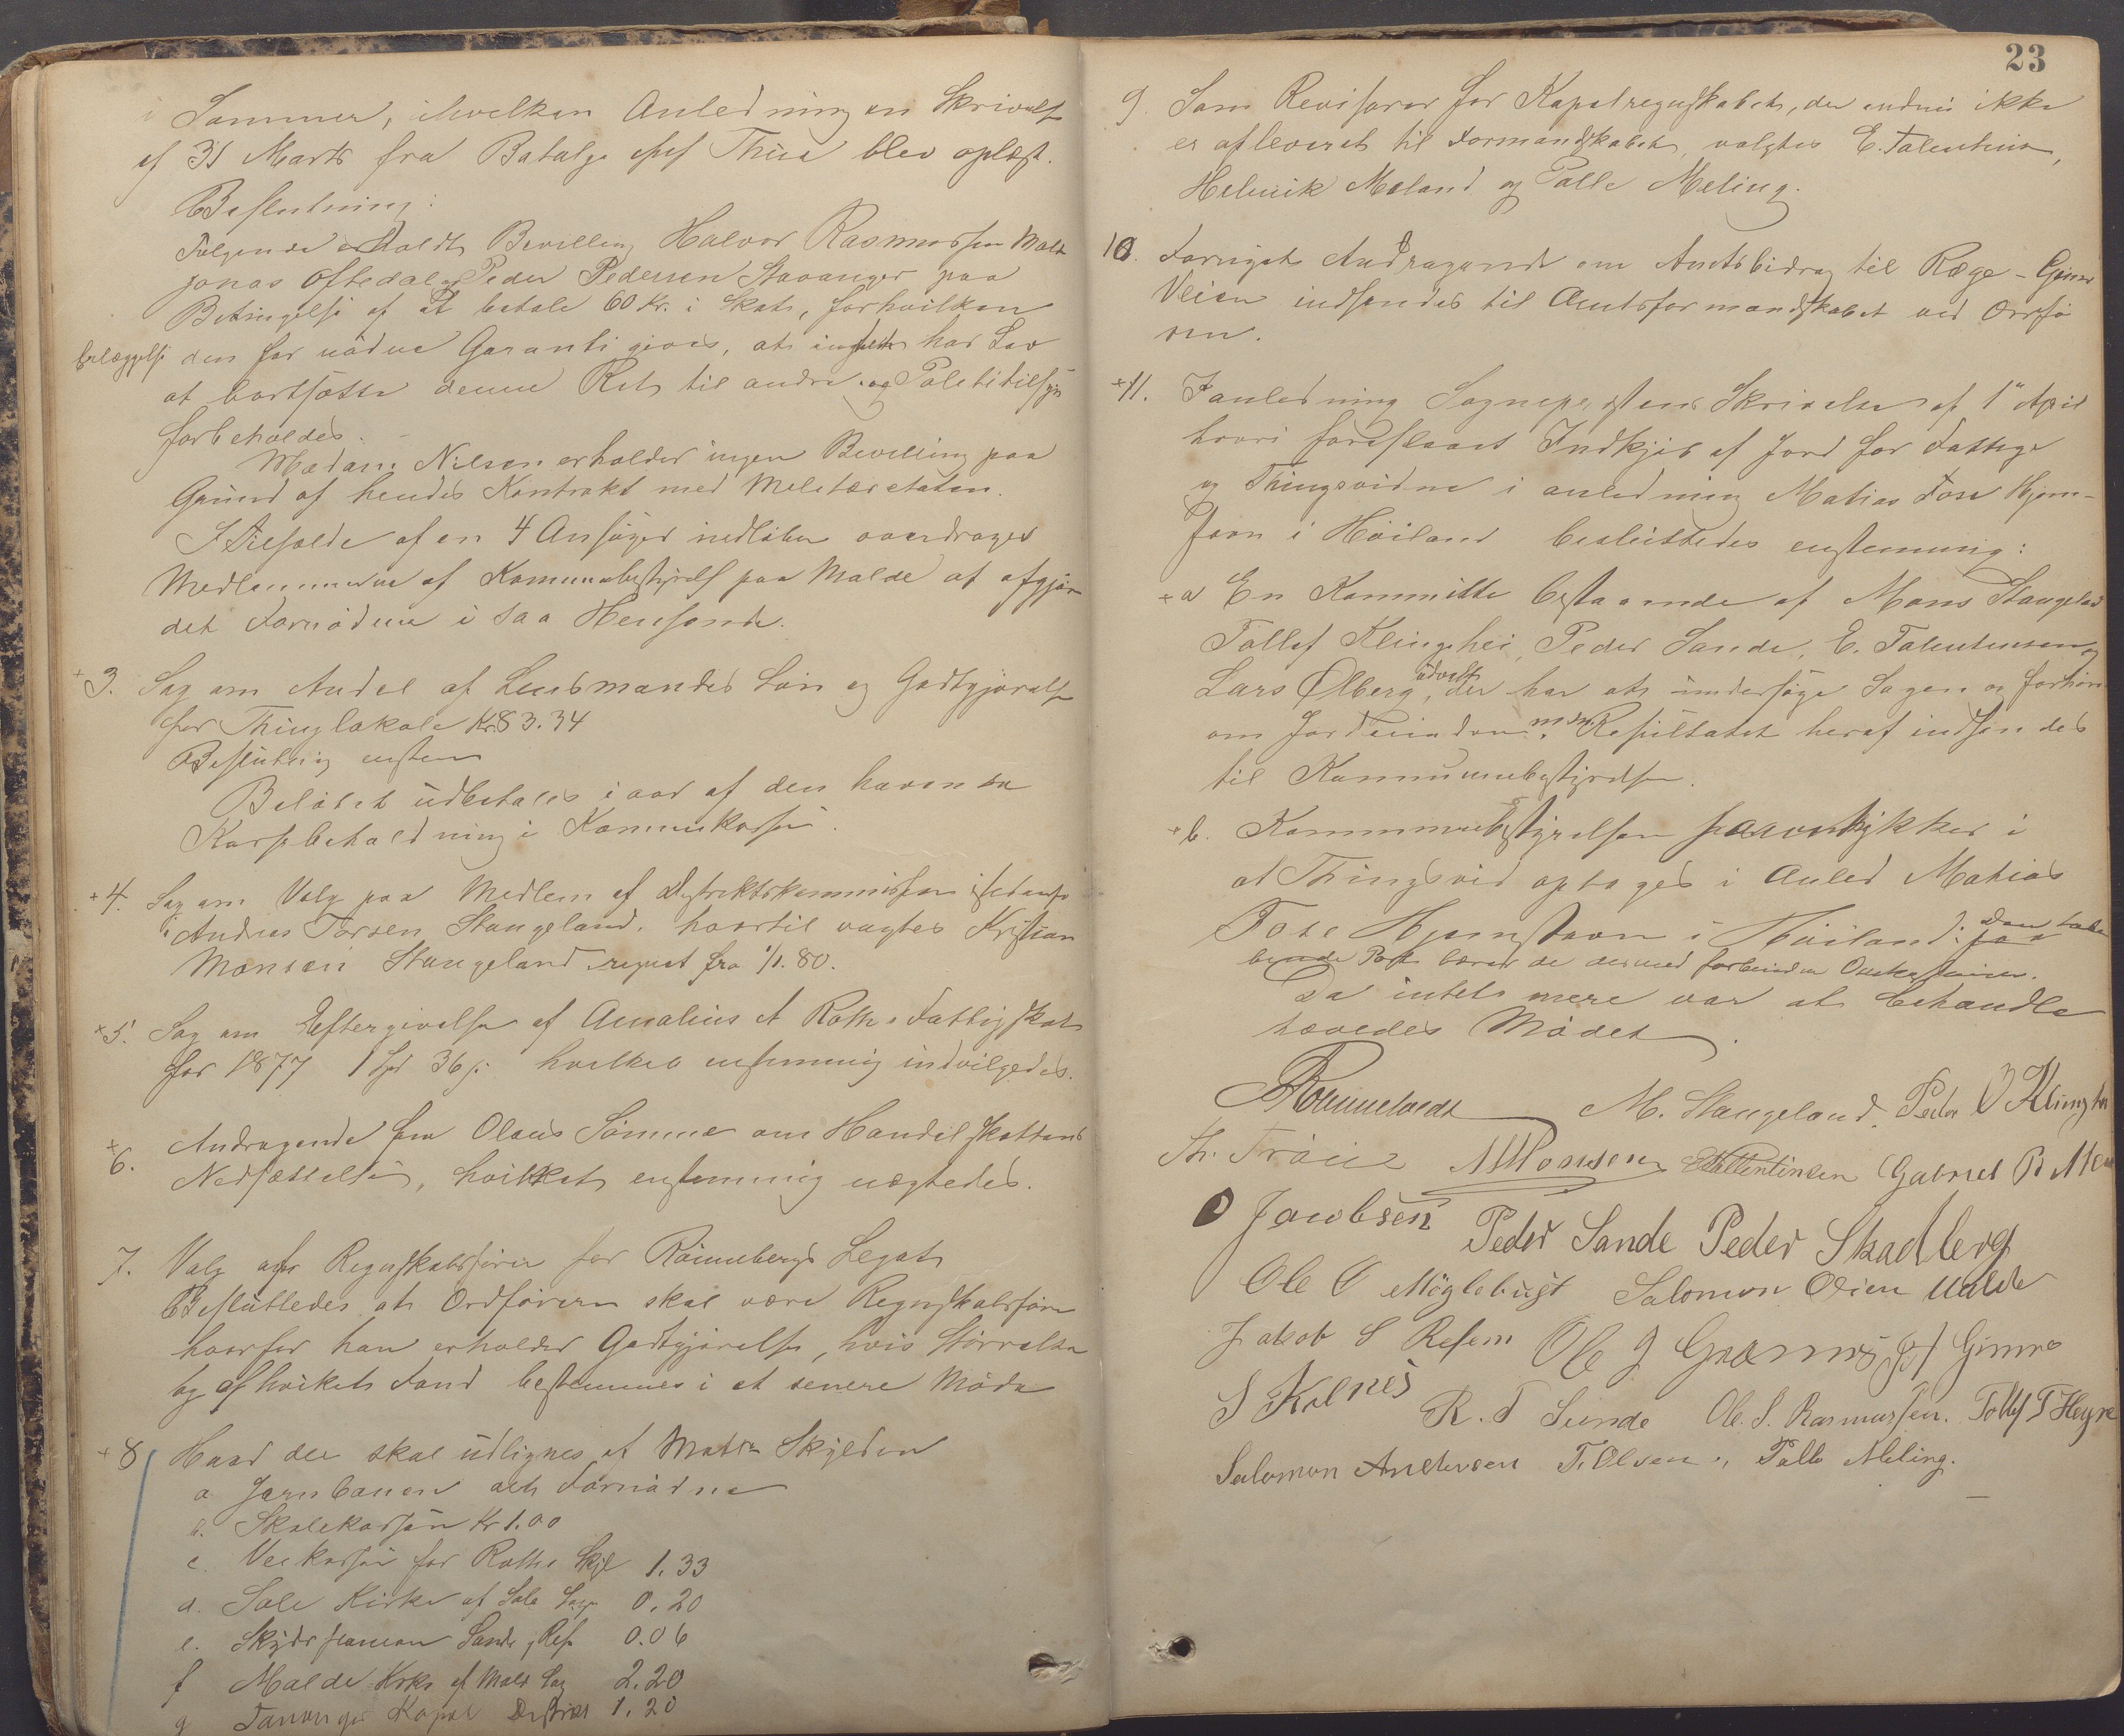 i Sommer, ihvilken Anledning en Skrivelse
af 31 Marts fra Batalje chef Thue blev oplæst.
Beslutning:
Følgende erholdt Bevilling Halvor Rasmussen Malde
Jonas Oftedal og Peder Pedersen Stavanger paa
Betingelse af at betale 60 Kr. i Skat, forhvilken
den for nødne Garanti gives, at ingen har Lov
at bortsætte denne Ret til andre og Politi
forbeholdes.
Madam Nilsen erholder ingen Bevilling paa
Grund af hendes Kontrakt med Militæretaten.
I Tilfælde af en 4 Ansøger indløber overdrages
Medlemmerne af Kommunebestyrels paa Malde at afgjøre
det Fornødne i saa Henseende.
+3. Sag om Andel af Lensmandes Løn og Godtgjørelse
for Thinglokale Kr. 83.34
Beslutning enstem
Beløbet udbetales i aar af den havende
Kassebeholdning i Kommunekassen.
+4. Sag om Valg paa Medlem af Distriktskommissionen istedenfor
Andreas Torsen Stangeland. hvortil valgtes Kristian
Monsen Stangeland regnet fra 1/1. 80.
+5. Sag om Eftergivelse af Amalius A Roth Fattigskat
for 1877 1 Spd 36 s. hvilket enstemmig indvilgedes.
+6. Andragende fra Olaus Sømme om Handelskattens
Nedsættelse, hvilket enstemmig nægtedes.
7. Valg af Regnskabsfører for Rønnebergs Legat
Besluttedes at Ordføreren skal være Regnskabsfører
hvorfor han erholder Godtgjørelse, hvis Størrelse
og af hvilket Fond bestemmes i et senere Møde
+8 Hvad der skal udlignes af Matr Skylden
a Jernbanen det Fornødne
b. Skolekassen Kr 1.00
c. Veikassen for Roths Skyl 1.33
d. Sole Kirke af Sole Sogn 0.20
e. Skyds Sande, Ref 0.06
f Malde Kirke af Malde Sog 2.20
g Tananger Kapel Distrikt 1.20
23
9. Som Revisorer for Kapelregnskabet, der endnu ikke
er afleveret til Formandskabet, valgtes E. Talentinsen,
Helmik Meland og Tolle Meling.
10. Fornyet Andragende om Amtsbidrag til Ræge-Gimre
Veien indsendes til Amtsformandskabet ved Ordføre
ren.
+11. I anledning Sognepræstens Skrivelse af 1ste April
hvori foreslaaet Indkjøb af Jord for Fattige
og Thingsvidne i anledning Matias Fose Hjem-
stavn i Høiland besluttedes enstemmig:
+a En Kommitte bestaaende af Mons Stangeland
Tollef Klinghei, Peder Sande, E. Talentinsen og
Lars Ølberg, udvalgt der har at undersøge Sagen og forhøre
om Jordeiendom m.m. Resultatet heraf indsendes
til Kommunebestyrelsen.
+b. Kommunebestyrelsen samtykker i
at Thingsvid optages i Anled Matias
Fose Hjemstavn i Høiland
bende Part bærer de dermed forbundne Omkostninger.
Da intet mere var at behandle
hævedes Mødet.
M. Stangeland. Peder O Klinghei
Th. Trøier A Monsen E Vallentinsen Gabriel B
O Jacobsen Peder Sande Peder Skadberg
Ole O Møglebust Salomon Olsen Malde
Jakob S Refsem Ole J Grannis Gimre
S Kolnes R. T Sunde Ole. S. Rasmussen. Tollef T Heyre
Salomon Andersen T. Olsen Tolle Meling.